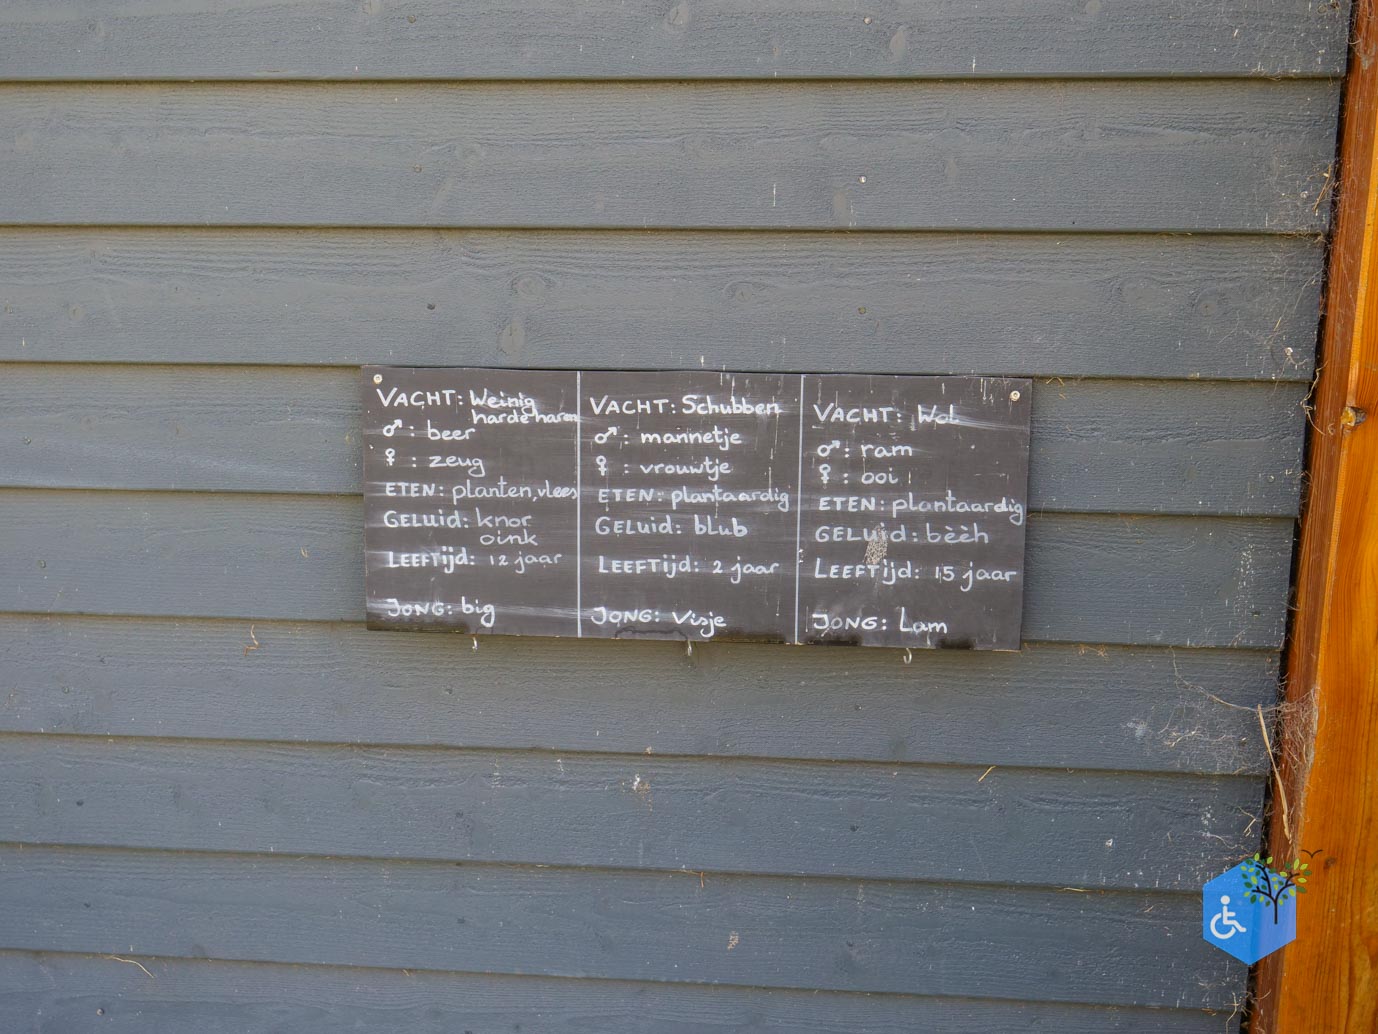 VACHT: Weinig
harde haren
♂: beer
♀: zeug
ETEN: planten, vlees
GELUID: knor
oink
LEEFTijd: 12 jaar
JONG: big
VACHT: Schubben
♂: mannetje
♀: vrouwtje
ETEN: plantaardig
GELUID: blub
LEEFTijd: 2 jaar
JONG: Visje
VACHT: Wol
♂: ram
♀: ooi
ETEN: plantaardig
GELUID: bèèh
LEEFTijd: 15 jaar
JONG: Lam